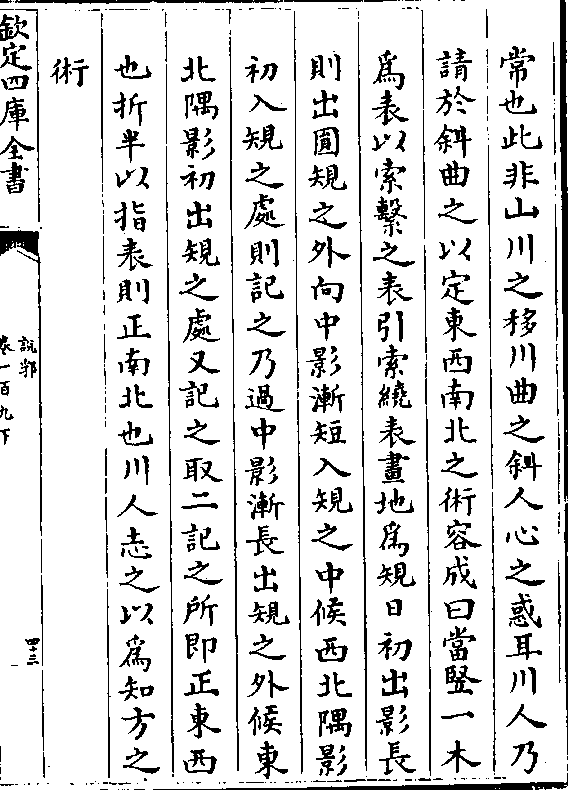 常也此非山川之移川曲之斜人心之惑耳川人乃
請於斜曲之以定東西南北之術容成曰當竪一木
爲表以索繫之表引索繞表畫地爲規日初出影長
則出圎規之外向中影漸短入規之中候西北隅影
初入規之處則記之乃過中影漸長出規之外候東
北隅影初出規之處又記之取二記之所即正東西
也折半以指表則正南北也川人志之以爲知方之
術
欽定四庫全書
說郛
卷一百九下
四十三